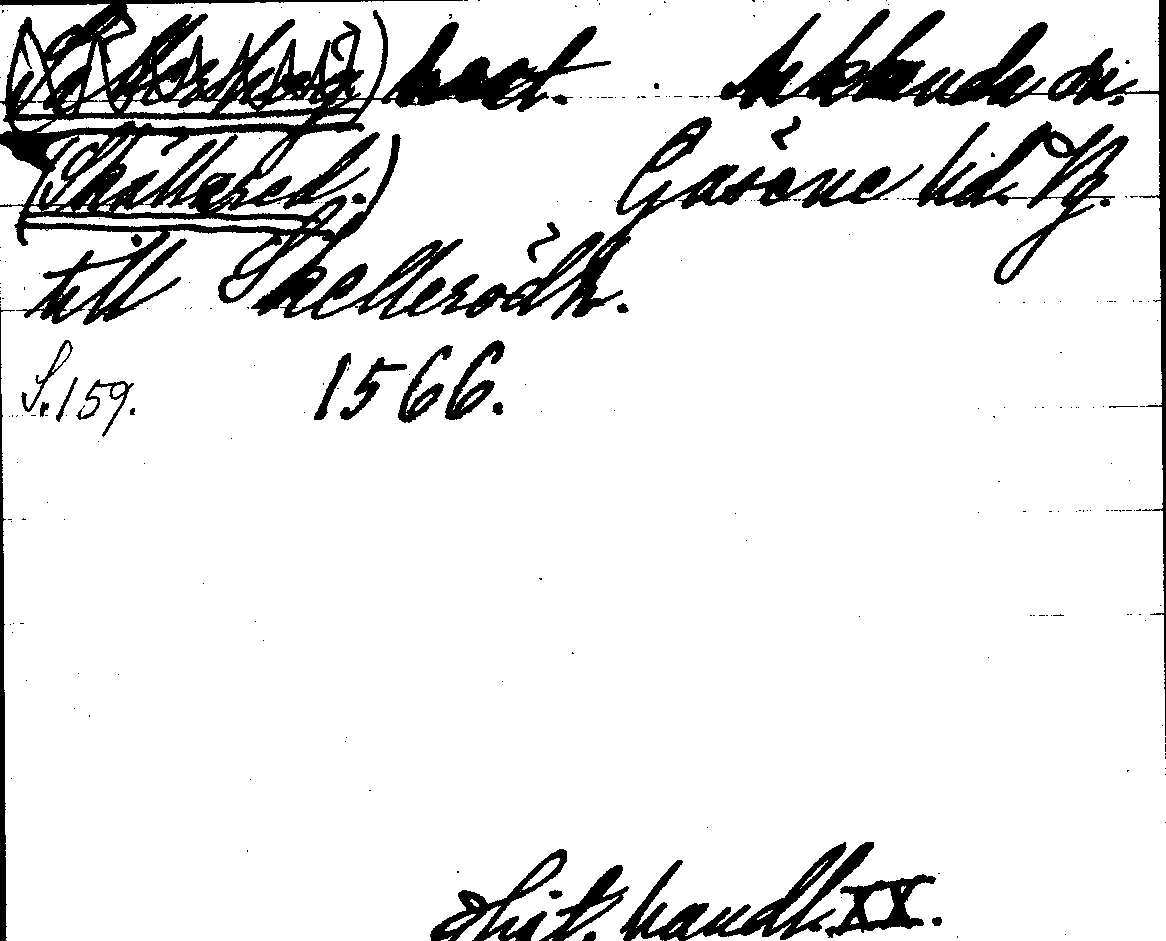 Asklanda sn.
(Skållared.) Gäsene hd. Vg.
till Skellerödh.
S. 159. 1566.
Hist. handl. XX.